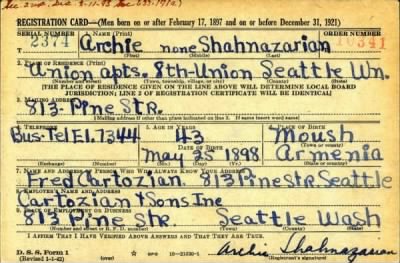 REGISTRATION CARD—(Men born on or after February 17, 1897 and on or before December 31, 1921)
SERIAL NUMBER 1. NAME (Print) ORDER NUMBER
2374 Archie none Shahnazarian 341
(First) (Middle) (Last)
2. PLACE OF RESIDENCE (Print)
Union apts. 8th-Union Seattle Wn.
(Number and street) (Town, township, village, or city) (County) (State)
[THE PLACE OF RESIDENCE GIVEN ON THE LINE ABOVE WILL DETERMINE LOCAL BOARD
JURISDICTION; LINE 2 OF REGISTRATION CERTIFICATE WILL BE IDENTICAL]
3. MAILING ADDRESS
813-Pine Str.
[Mailing address if other than place indicated on line 2. If same insert word same]
4. TELEPHONE 5. AGE IN YEARS 6. PLACE OF BIRTH
Bus-Tel El.7344 43 Moush
DATE OF BIRTH
May 25 1898 Armenia
(Exchange) (Number) (Mo.) (Day) (Yr.) (State or country)
7. NAME AND ADDRESS OF PERSON WHO WILL ALWAYS KNOW YOUR ADDRESS
Fred Cartozian. 813 Pine str. Seattle
8. EMPLOYER'S NAME AND ADDRESS
Cartozian & Sons Inc
9. PLACE OF EMPLOYMENT OR BUSINESS
813 Pine Str. Seattle Wash
(Number and street or R. F. D. number) (Town) (County) (State)
I AFFIRM THAT I HAVE VERIFIED ABOVE ANSWERS AND THAT THEY ARE TRUE.
D. S. S. Form 1
(Revised 1-1-42) GPO 16—21630-1 Archie Shahnazarian
(Registrant's signature)